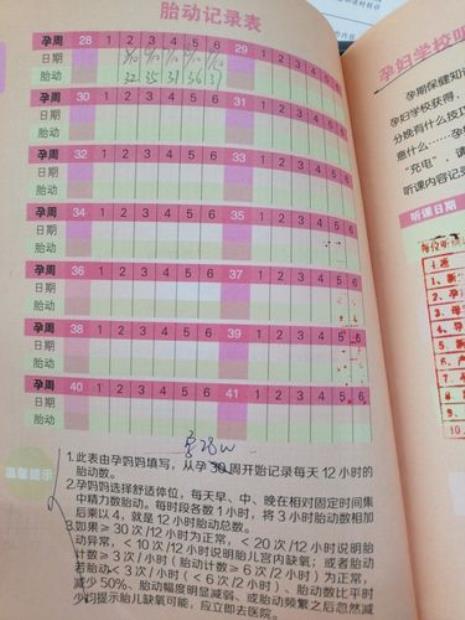 胎动记录表
孕周 28 1 2 3 4 5 6 29 1 2 3 4 5 6
日期
胎动 32 35 31 36 31
孕周 30 1 2 3 4 5 6 31 1 2 3 4 5 6
日期
胎动
孕周 32 1 2 3 4 5 6 33 1 2 3 4 5 6
日期
胎动
孕周 34 1 2 3 4 5 6 35 1 2 3 4 5 6
日期
胎动
孕周 36 1 2 3 4 5 6 37 1 2 3 4 5 6
日期
胎动
孕周 38 1 2 3 4 5 6 39 1 2 3 4 5 6
日期
胎动
孕周 40 1 2 3 4 5 6 41 1 2 3 4 5 6
日期
胎动
孕28W
温馨提示
1.此表由孕妈妈填写，从孕30周开始记录每天12小时的
胎动数。
2.孕妈妈选择舒适体位，每天早、中、晚在相对固定时间集
中精力数胎动。每时段各数1小时，将3小时胎动数相加
后乘以4，就是12小时胎动总数。
3.如果≥30次/12小时为正常，<20次/12小时说明胎
动异常，<10次/12小时说明胎儿宫内缺氧；或者胎动
计数≥3次/小时（胎动计数≥6次/2小时）为正常，
若胎动<3次/小时（<6次/2小时）、胎动数比平时
减少50%、胎动幅度明显减弱、或胎动频繁之后忽然减
少均提示胎儿缺氧可能，应立即去医院。
孕妇学校
孕期保健知
孕妇学校获得，
分娩有什么技巧
意什么……孕
“充电”，请
听课内容记录
听课日期